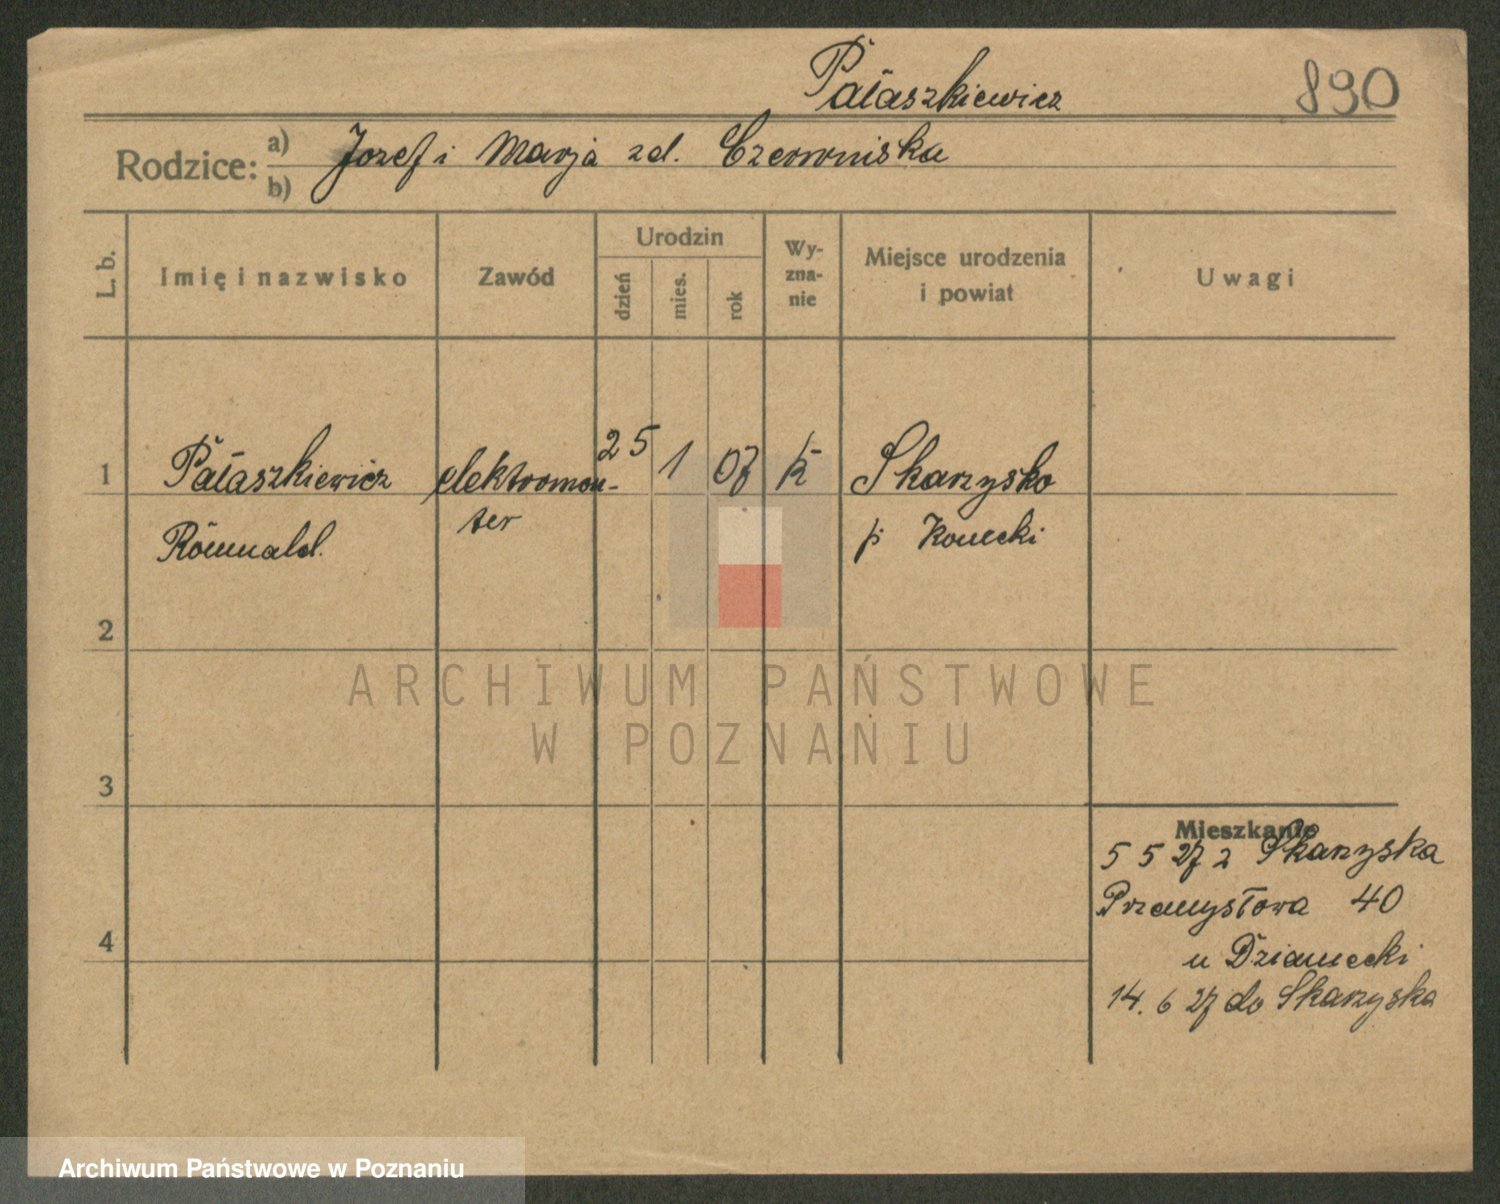 Pałaszkiewicz 890
Rodzice: a) Jozef i Marja zd. Czerwniska
b)
L. b. Imię i nazwisko Zawód Urodzin dzień mies. rok Wyznanie Miejsce urodzenia i powiat Uwagi
1 Pałaszkiewicz elektromon- 25 1 07 k Skarzysko
Romuald. ter p. Konecki
2
3
4
Mieszkanie
5 5 27 z Skarzyska
Przemysłowa 40
u Dzianecki
14. 6 27 do Skarzyska
ARCHIWUM PAŃSTWOWE
W POZNANIU
Archiwum Państwowe w Poznaniu